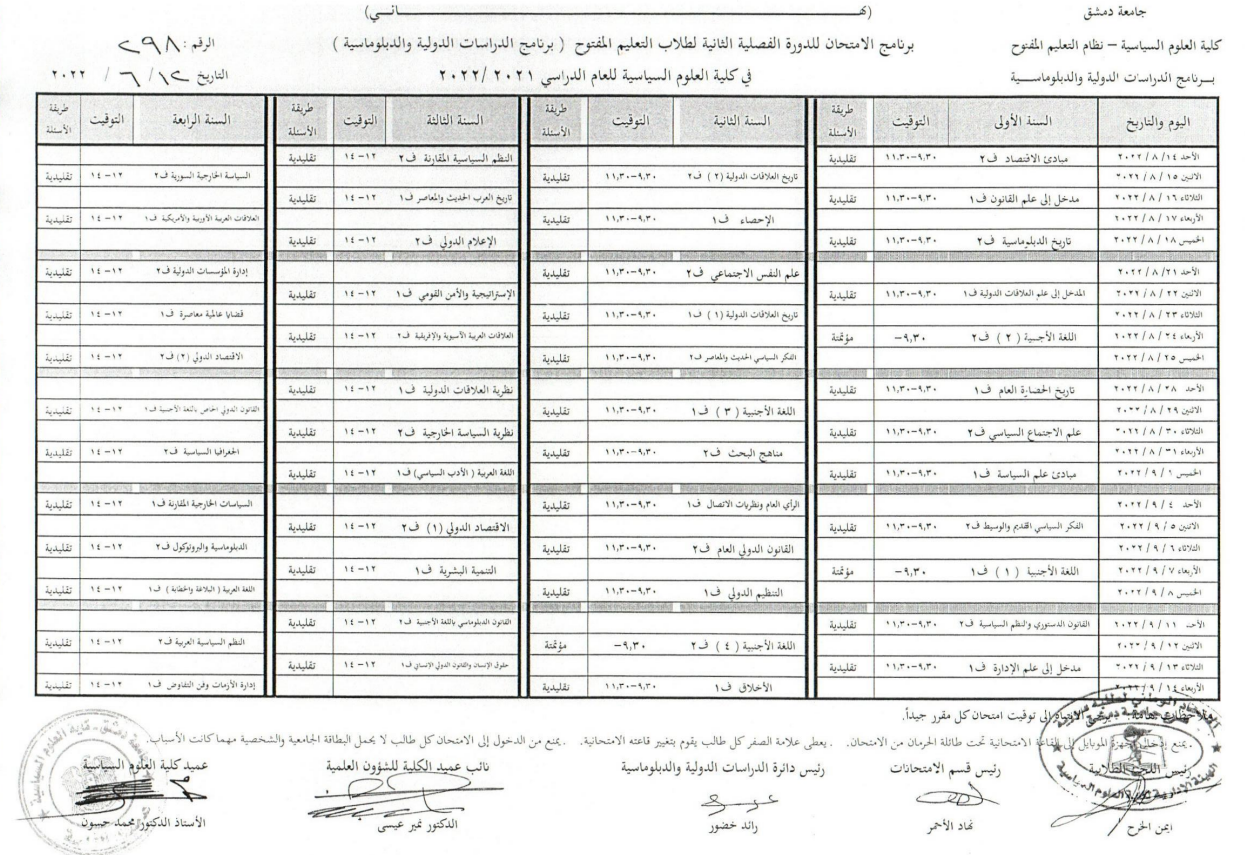 جامعة دمشق
(نهـــــــائـــــــي)
كلية العلوم السياسية – نظام التعليم المفتوح
برنامج الامتحان للدورة الفصلية الثانية لطلاب التعليم المفتوح ( برنامج الدراسات الدولية والدبلوماسية )
الرقم: ٢٩٨
بـرنامج الدراسات الدولية والدبلوماسـية
في كلية العلوم السياسية للعام الدراسي ٢٠٢١ / ٢٠٢٢
التاريخ ١٢ / ٦ / ٢٠٢٢
اليوم والتاريخ السنة الأولى التوقيت طريقة الأسئلة السنة الثانية التوقيت طريقة الأسئلة السنة الثالثة التوقيت طريقة الأسئلة السنة الرابعة التوقيت طريقة الأسئلة
الأحد ١٤ / ٨ / ٢٠٢٢ مبادئ الاقتصاد ف٢ ٩,٣٠–١١,٣٠ تقليدية النظم السياسية المقارنة ف٢ ١٢–١٤ تقليدية
الاثنين ١٥ / ٨ / ٢٠٢٢ تاريخ العلاقات الدولية (٢) ف٢ ٩,٣٠–١١,٣٠ تقليدية السياسة الخارجية السورية ف٢ ١٢–١٤ تقليدية
الثلاثاء ١٦ / ٨ / ٢٠٢٢ مدخل إلى علم القانون ف١ ٩,٣٠–١١,٣٠ تقليدية تاريخ العرب الحديث والمعاصر ف١ ١٢–١٤ تقليدية
الأربعاء ١٧ / ٨ / ٢٠٢٢ الإحصاء ف١ ٩,٣٠–١١,٣٠ تقليدية العلاقات العربية الأوربية والأمريكية ف١ ١٢–١٤ تقليدية
الخميس ١٨ / ٨ / ٢٠٢٢ تاريخ الدبلوماسية ف٢ ٩,٣٠–١١,٣٠ تقليدية الإعلام الدولي ف٢ ١٢–١٤ تقليدية
الأحد ٢١ / ٨ / ٢٠٢٢ علم النفس الاجتماعي ف٢ ٩,٣٠–١١,٣٠ تقليدية إدارة المؤسسات الدولية ف٢ ١٢–١٤ تقليدية
الاثنين ٢٢ / ٨ / ٢٠٢٢ المدخل إلى علم العلاقات الدولية ف١ ٩,٣٠–١١,٣٠ تقليدية الإستراتيجية والأمن القومي ف١ ١٢–١٤ تقليدية
الثلاثاء ٢٣ / ٨ / ٢٠٢٢ تاريخ العلاقات الدولية (١) ف١ ٩,٣٠–١١,٣٠ تقليدية قضايا عالمية معاصرة ف١ ١٢–١٤ تقليدية
الأربعاء ٢٤ / ٨ / ٢٠٢٢ اللغة الأجنبية (٢) ف٢ ٩,٣٠– مؤتمتة العلاقات العربية الآسيوية والإفريقية ف٢ ١٢–١٤ تقليدية
الخميس ٢٥ / ٨ / ٢٠٢٢ الفكر السياسي الحديث والمعاصر ف٢ ٩,٣٠–١١,٣٠ تقليدية الاقتصاد الدولي (٢) ف٢ ١٢–١٤ تقليدية
الأحد ٢٨ / ٨ / ٢٠٢٢ تاريخ الحضارة العام ف١ ٩,٣٠–١١,٣٠ تقليدية نظرية العلاقات الدولية ف١ ١٢–١٤ تقليدية
الاثنين ٢٩ / ٨ / ٢٠٢٢ اللغة الأجنبية (٣) ف١ ٩,٣٠–١١,٣٠ تقليدية القانون الدولي الخاص باللغة الأجنبية ف١ ١٢–١٤ تقليدية
الثلاثاء ٣٠ / ٨ / ٢٠٢٢ علم الاجتماع السياسي ف٢ ٩,٣٠–١١,٣٠ تقليدية نظرية السياسة الخارجية ف٢ ١٢–١٤ تقليدية
الأربعاء ٣١ / ٨ / ٢٠٢٢ مناهج البحث ف٢ ٩,٣٠–١١,٣٠ تقليدية الجغرافيا السياسية ف٢ ١٢–١٤ تقليدية
الخميس ١ / ٩ / ٢٠٢٢ مبادئ علم السياسة ف١ ٩,٣٠–١١,٣٠ تقليدية اللغة العربية (الأدب السياسي) ف١ ١٢–١٤ تقليدية
الأحد ٤ / ٩ / ٢٠٢٢ الرأي العام ونظريات الاتصال ف١ ٩,٣٠–١١,٣٠ تقليدية السياسات الخارجية المقارنة ف١ ١٢–١٤ تقليدية
الاثنين ٥ / ٩ / ٢٠٢٢ الفكر السياسي القديم والوسيط ف٢ ٩,٣٠–١١,٣٠ تقليدية الاقتصاد الدولي (١) ف٢ ١٢–١٤ تقليدية
الثلاثاء ٦ / ٩ / ٢٠٢٢ القانون الدولي العام ف٢ ٩,٣٠–١١,٣٠ تقليدية الدبلوماسية والبروتوكول ف٢ ١٢–١٤ تقليدية
الأربعاء ٧ / ٩ / ٢٠٢٢ اللغة الأجنبية (١) ف١ ٩,٣٠– مؤتمتة التنمية البشرية ف١ ١٢–١٤ تقليدية
الخميس ٨ / ٩ / ٢٠٢٢ التنظيم الدولي ف١ ٩,٣٠–١١,٣٠ تقليدية اللغة العربية (البلاغة والخطابة) ف١ ١٢–١٤ تقليدية
الأحد ١١ / ٩ / ٢٠٢٢ القانون الدستوري والنظم السياسية ف٢ ٩,٣٠–١١,٣٠ تقليدية القانون الدبلوماسي باللغة الأجنبية ف٢ ١٢–١٤ تقليدية
الاثنين ١٢ / ٩ / ٢٠٢٢ اللغة الأجنبية (٤) ف٢ ٩,٣٠– مؤتمتة النظم السياسية العربية ف٢ ١٢–١٤ تقليدية
الثلاثاء ١٣ / ٩ / ٢٠٢٢ مدخل إلى علم الإدارة ف١ ٩,٣٠–١١,٣٠ تقليدية حقوق الإنسان والقانون الدولي الإنساني ف١ ١٢–١٤ تقليدية
الأربعاء ١٤ / ٩ / ٢٠٢٢ الأخلاق ف١ ٩,٣٠–١١,٣٠ تقليدية إدارة الأزمات وفن التفاوض ف١ ١٢–١٤ تقليدية
إلى توقيت امتحان كل مقرر جيداً.
. يمنع إدخال أجهزة الموبايل إلى القاعة الامتحانية تحت طائلة الحرمان من الامتحان. . يعطى علامة الصفر كل طالب يقوم بتغيير قاعته الامتحانية. . يمنع من الدخول إلى الامتحان كل طالب لا يحمل البطاقة الجامعية والشخصية مهما كانت الأسباب.
رئيس اللجنة الطلابية رئيس قسم الامتحانات رئيس دائرة الدراسات الدولية والدبلوماسية نائب عميد الكلية للشؤون العلمية عميد كلية العلوم السياسية
ايمن الخرح نهاد الأحمر رائد خضور الدكتور نمير عيسى الأستاذ الدكتور محمد حسون